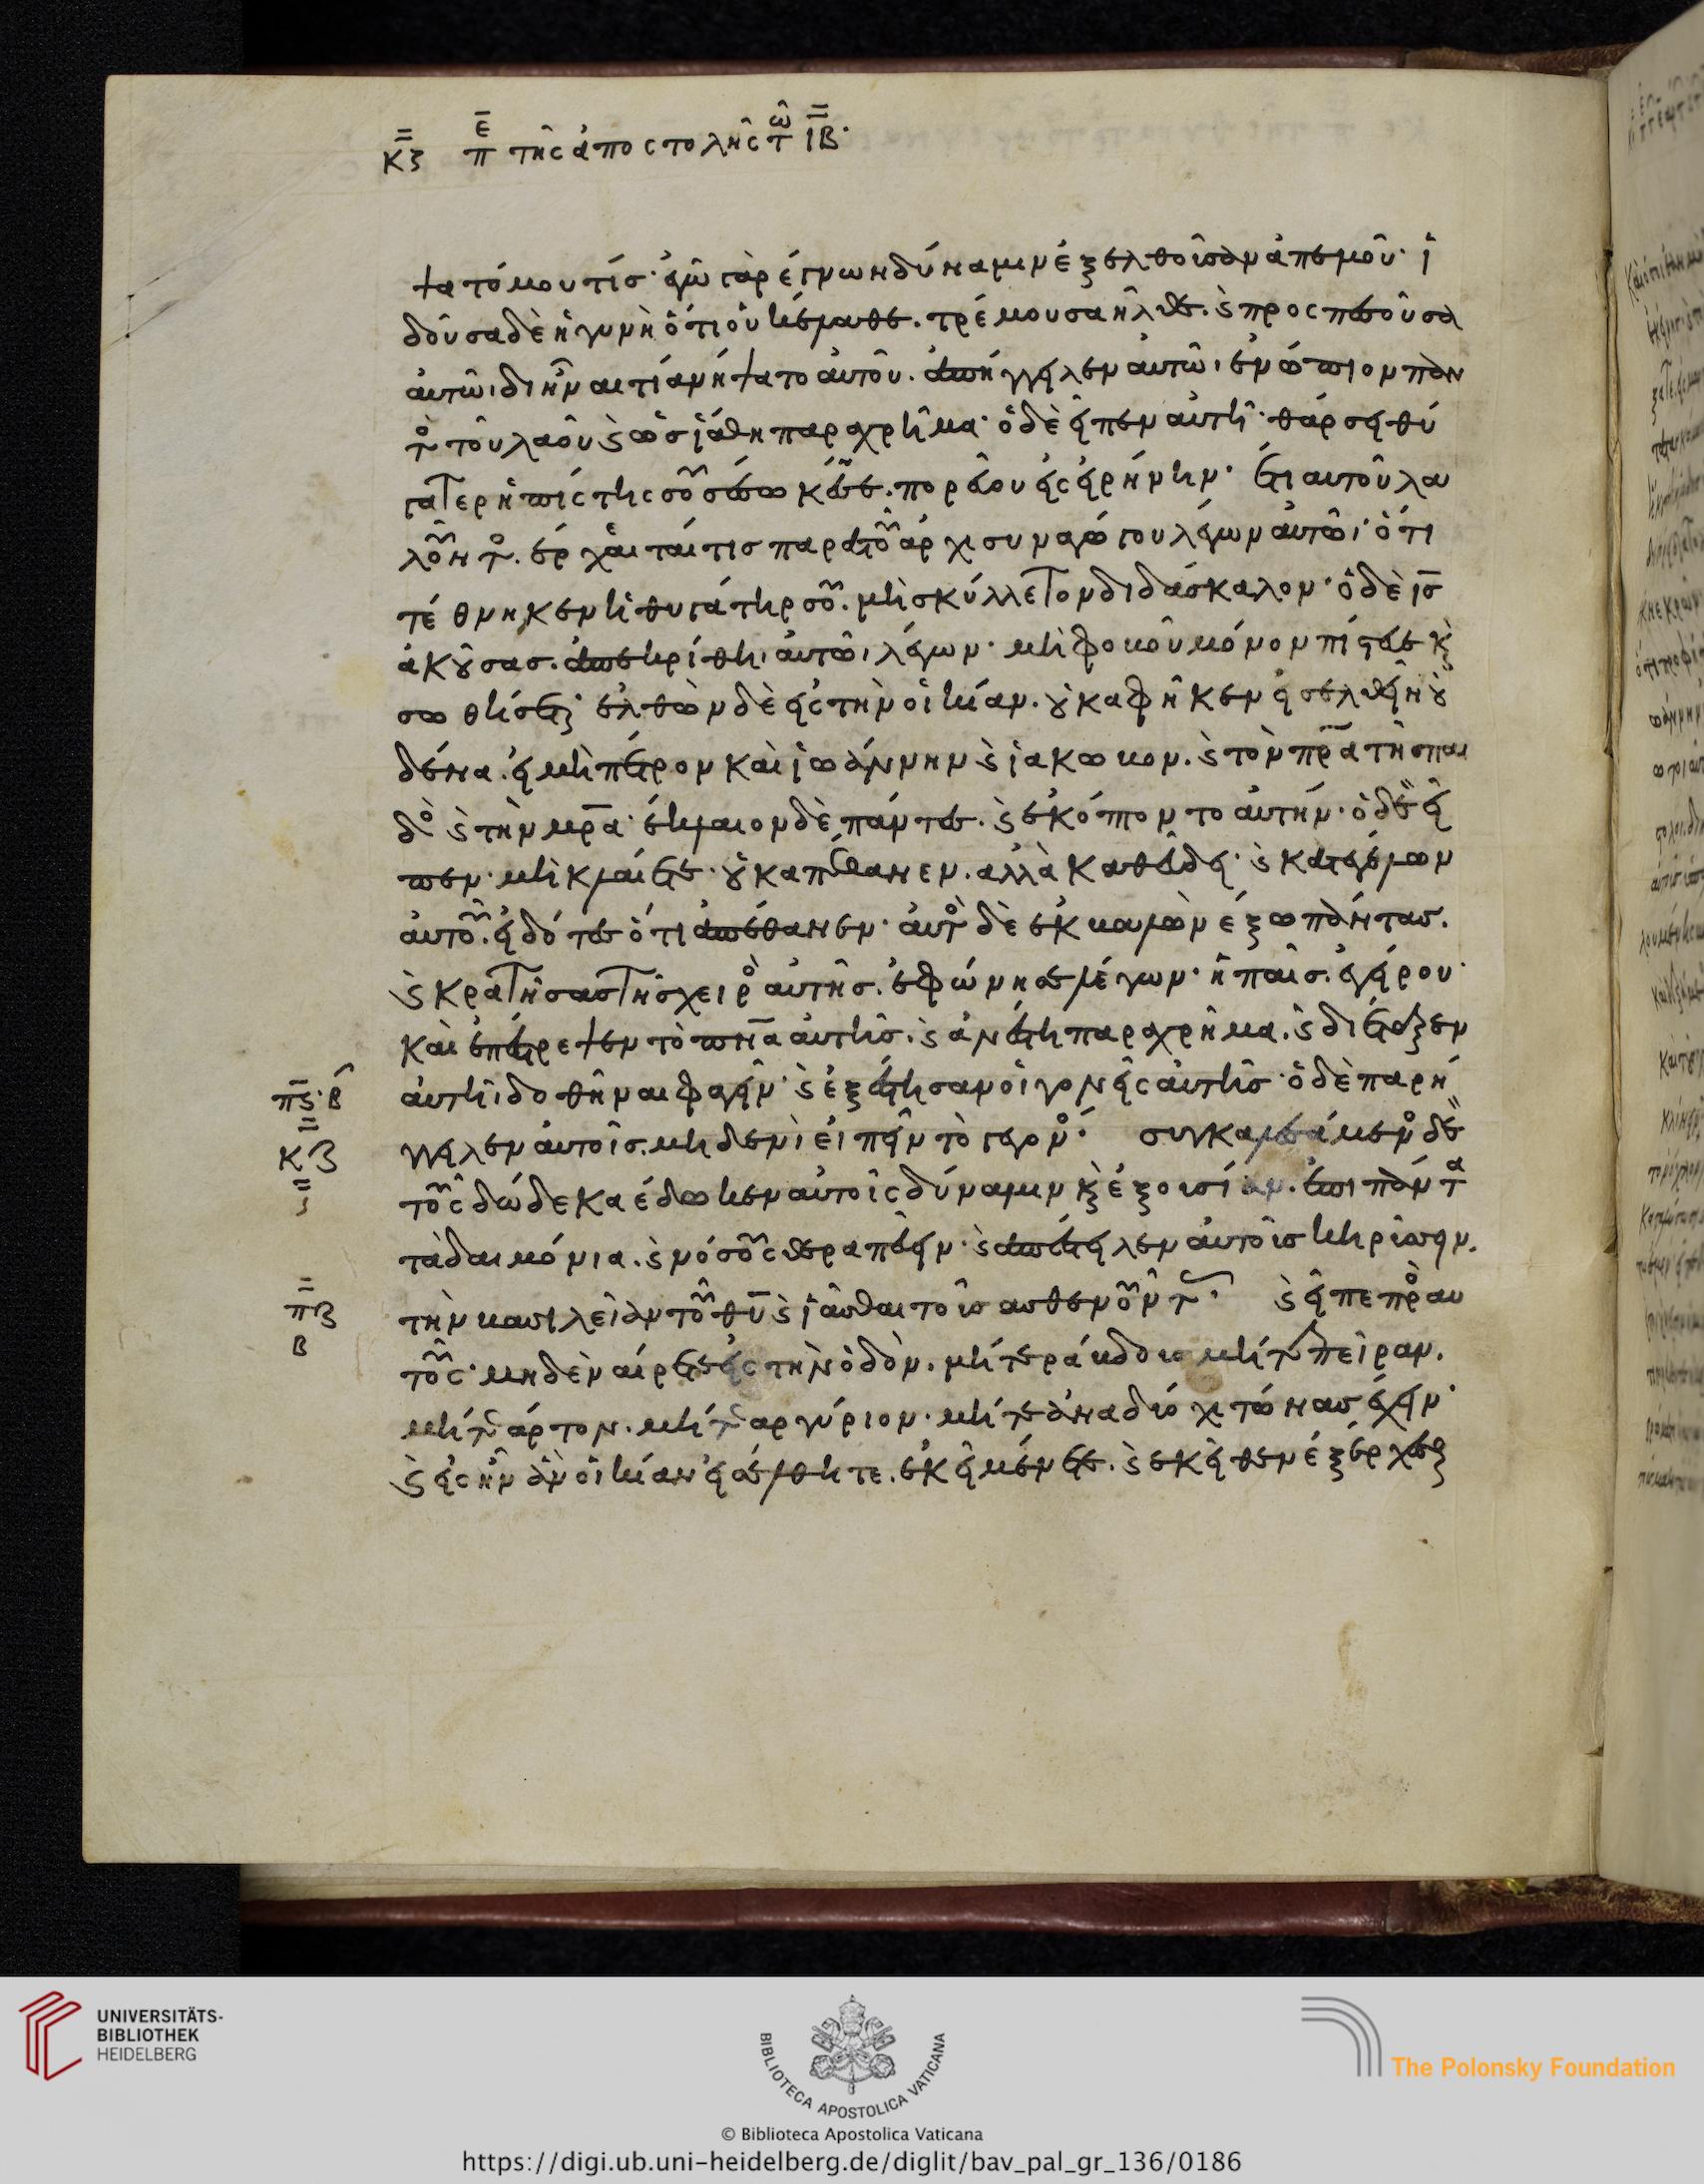 κζ πε της αποστολης τω ιβ·
ψατό μου τίς· ἐγὼ γὰρ ἔγνων δύναμιν ἐξελθοῦσαν ἀπεμοῦ· ἰ
δοῦσα δὲ ἡ γυνὴ ὅτι οὐκ έλαθε. τρέμουσα ἦλθε. καὶ προσπεσοῦσα
αὐτῶι δι ἣν αιτίαν ήψατο αὐτοῦ. ἀπήγγειλεν αὐτῶι ἐνώπιον παν
τὸς τοῦ λαοῦ καὶ ὡς ἰάθη παραχρῆμα· ὁ δὲ εἶπεν αὐτῆ· θάρσει θύ
γατερ ἡ πίστις σου σέσωκέ σε. πορεύου εἰς εἰρήνην· ἔτι αυτοῦ λα
λοῦντος. έρχεται τις παρα τοῦ ἀρχισυναγώγου λέγων αὐτῶι· ὅτι
τέθνηκεν ἡ θυγάτηρ σου. μὴ σκύλλε τον διδάσκαλον· ὁ δὲ ις
ἀκούσας. ἀπεκρίθη αὐτῶι λέγων· μὴ φοβοῦ μόνον πίστευε καὶ
σωθήσεται· ἐλθὼν δὲ εἰς τὴν οἰκίαν. οὐκ αφῆκεν εἰσελθεῖν οὐ
δένα. εἰ μὴ πέτρον καὶ ἰωάννην καὶ ἰακωβον. καὶ τὸν πρα τῆς παι
δὸς καὶ τὴν μρα· έκλαιον δὲ πάντες. καὶ ἐκόπτοντο αὐτήν· ὁ δὲ εἶ
πεν· μὴ κλαίετε· οὐκ απέθανεν. αλλὰ καθεύδει· καὶ κατεγέλων
αὐτοῦ. εἰδότες ὅτι ἀπέθανεν· αὐτὸς δὲ ἐκβαλὼν έξω πάντας.
καὶ κρατήσας τῆς χειρὸς αὐτῆς. ἐφώνησε λέγων· ἡ παῖς. ἐγείρου·
Καὶ ἐπέστρεψεν τὸ πνα αὐτῆς. καὶ ἀνέστη παραχρῆμα. καὶ διέταξεν
αὐτῆι δοθῆναι φαγεῖν· καὶ ἐξέστησαν οἱ γονεῖς αὐτῆς· ὁ δὲ παρή
πς· β
γγειλεν αὐτοῖς. μηδενὶ εἰπεῖν τὸ γεγονός· συγκαλεσάμενος δὲ
κζ
τοὺς δώδεκα έδωκεν αὐτοῖς δύναμιν καὶ ἐξουσίαν. ἐπι πάντα
τὰ δαιμόνια. καὶ νόσους θεραπεύειν· καὶ ἀπέστειλεν αὐτοῖς κηρύσσειν.
πζ
τὴν βασιλείαν τοῦ θυ καὶ ἰᾶσθαι τοὺς ασθενοῦντας· καὶ εἶπε πρὸς αυ
β
τοὺς· μηδὲν αίρετε εἰς τὴν ὁδὸν. μήτε ράβδους μήτε πείραν.
μήτε άρτον. μήτε αργύριον· μήτε ἀνα δύο χιτώνας έχειν·
καὶ εἰς ἣν ἂν οἰκίαν εἰσέλθητε. ἐκεῖ μένετε. καὶ ἐκεῖθεν ἐξέρχεσθε
UNIVERSITÄTS-
BIBLIOTHEK
HEIDELBERG
BIBLIOTECA APOSTOLICA VATICANA
The Polonsky Foundation
© Biblioteca Apostolica Vaticana
https://digi.ub.uni-heidelberg.de/diglit/bav_pal_gr_136/0186